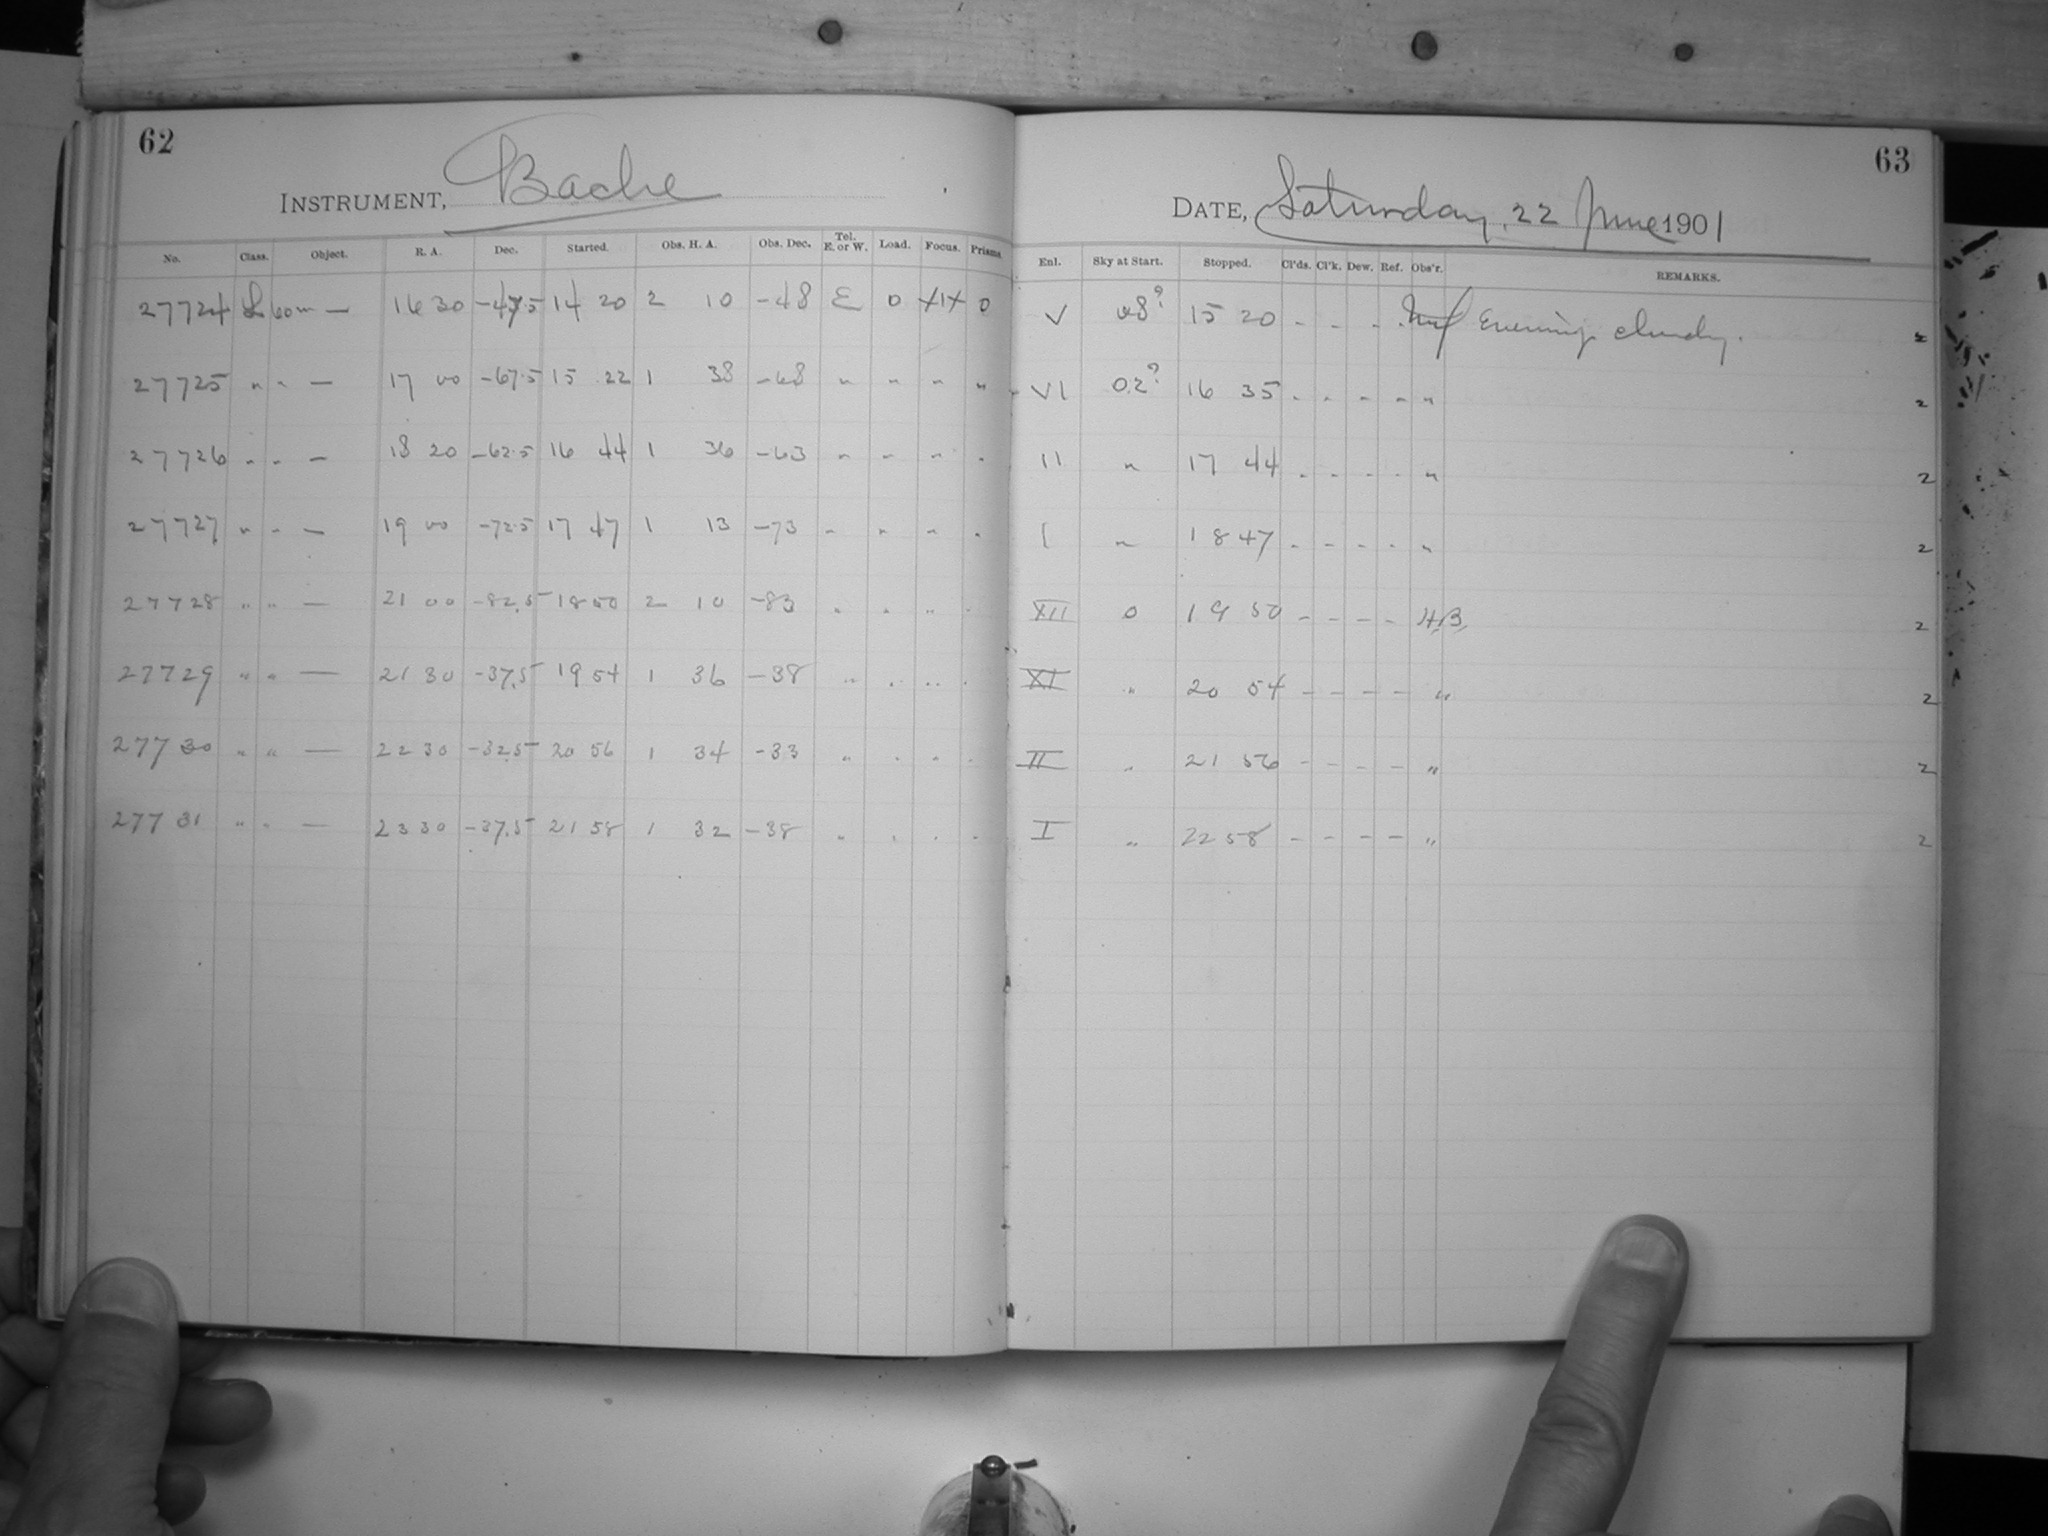 62
INSTRUMENT, Bache
No. Class. Object. R. A. Dec. Started. Obs. H. A. Obs. Dec. Tel. E. or W. Load. Focus. Prisms.
27724 L 60m — 16 30 -47.5 14 20 2 10 -48 E 0 0
27725 " " — 17 00 -67.5 15 22 1 38 -68 " " " "
27726 " " — 18 20 -62.5 16 44 1 36 -63 " " " "
27727 " " — 19 00 -72.5 17 47 1 13 -73 " " " "
27728 " " — 21 00 -82.5 18 50 2 10 -83 " " " "
27729 " " — 21 30 -37.5 19 54 1 36 -38 " " " "
27730 " " — 22 30 -32.5 20 56 1 34 -33 " " " "
27731 " " — 23 30 -37.5 21 58 1 32 -38 " " " "
63
DATE, Saturday, 22 June 1901
Enl. Sky at Start. Stopped. Cl'ds. Cl'k. Dew. Ref. Obs'r. REMARKS.
V 15 20 - - - - Evening cloudy. 2
VI 02? 16 35 - - - - " 2
II " 17 44 - - - - " 2
I " 18 47 - - - - " 2
XII 0 19 50 - - - - 2
XI " 20 54 - - - - " 2
II " 21 56 - - - - " 2
I " 22 58 - - - - " 2